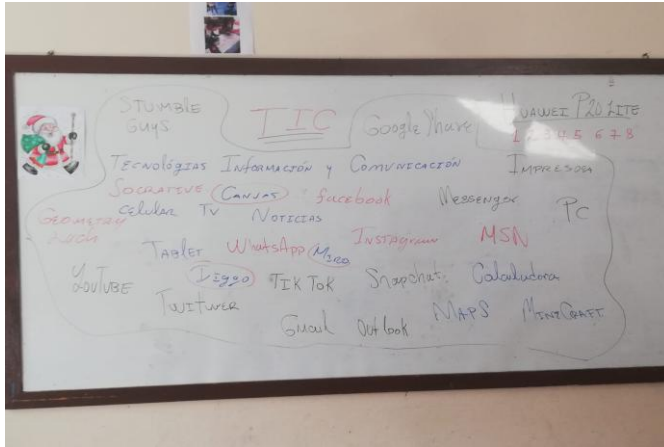 STUMBLE GUYS
TIC
Google
HUAWEI P20 LITE
1 2 3 4 5 6 7 8
TECNOLÓGIAS INFORMACIÓN y COMUNICACIÓN
IMPRESORA
SOCRATIVE CANVAS facebook
Messenger
PC
GEOMETRY
celular TV NOTICIAS
TABLET WhatsApp MIRO INSTAGRAM MSN
YOUTUBE
Diggo TIK TOK Snapchat Calculadora
TWITWER
Gmail Outlook MAPS MINECRAFT